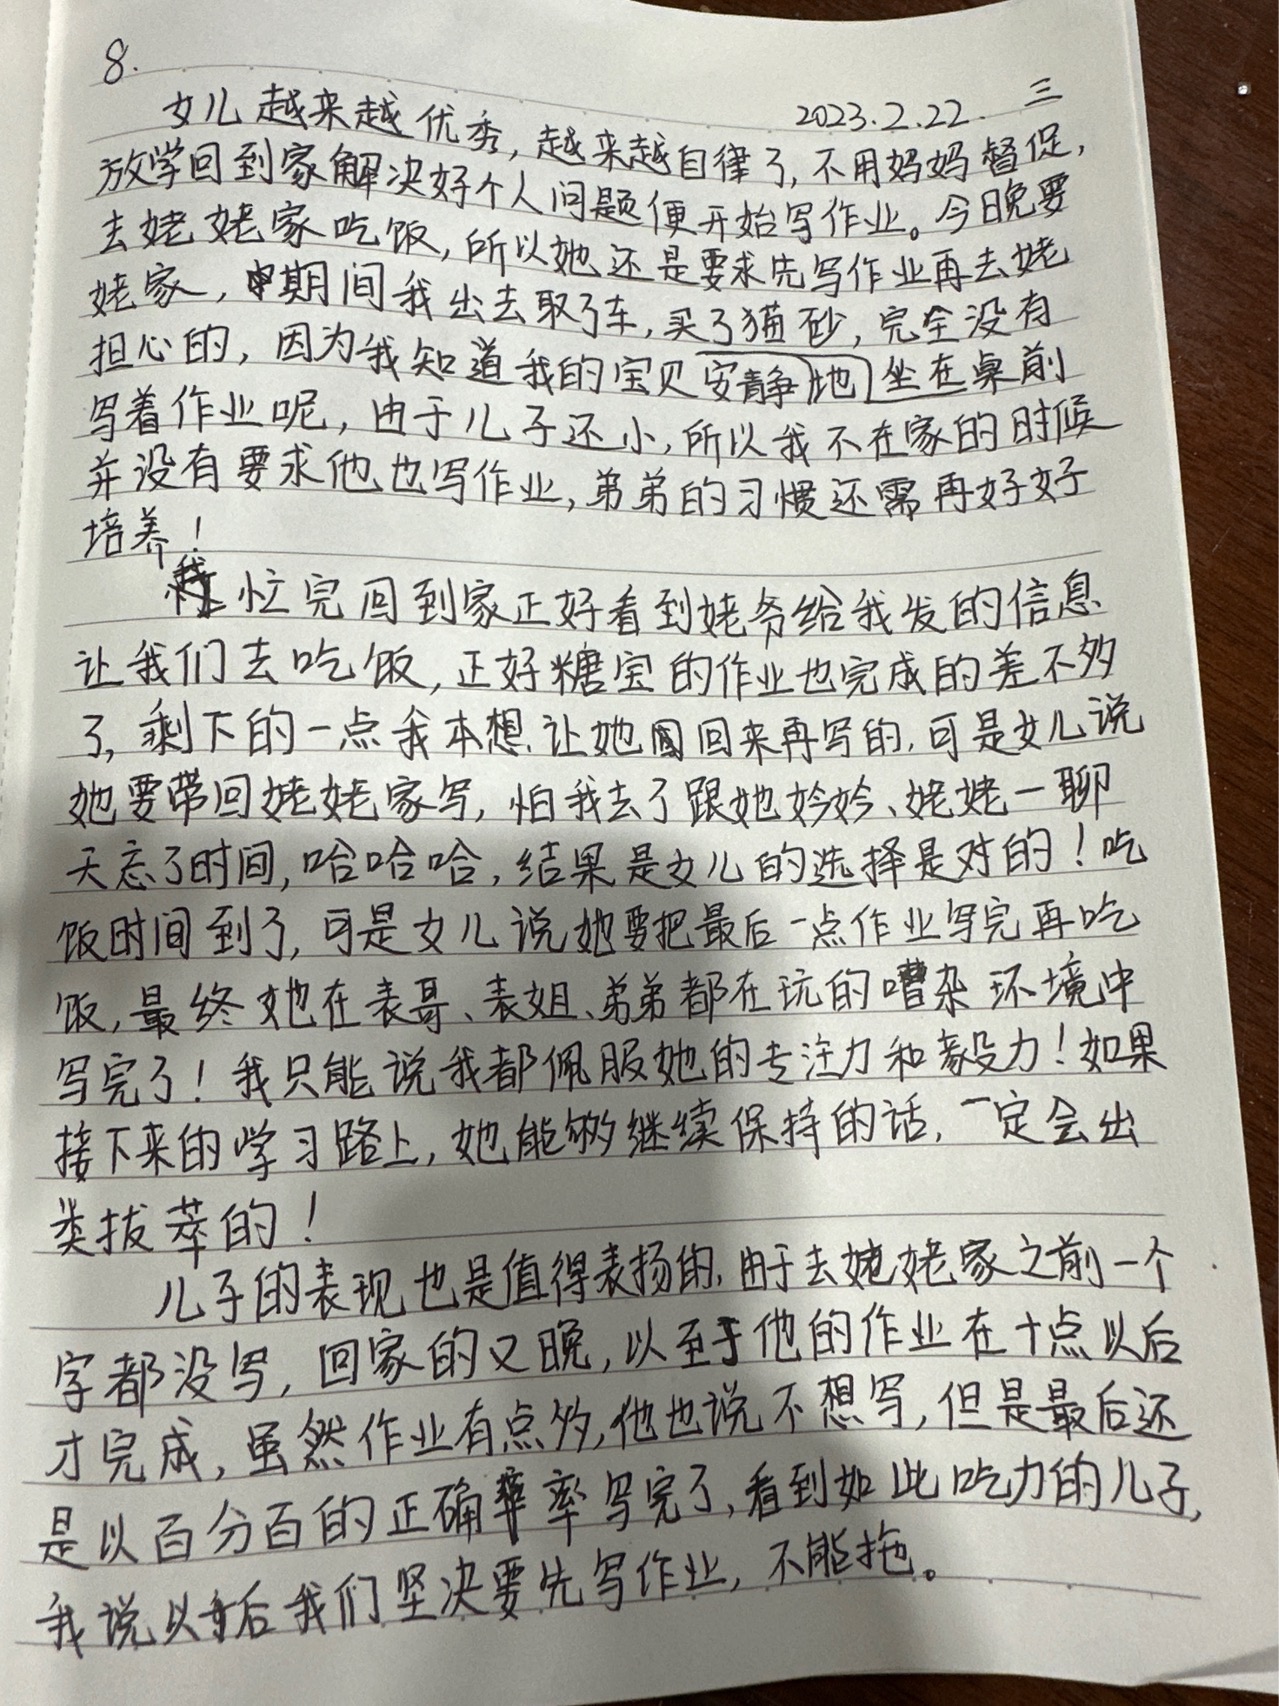 8.
2023.2.22. 三
女儿越来越优秀，越来越自律了，不用妈妈督促，
放学回到家解决好个人问题便开始写作业。今日晚要
去姥姥家吃饭，所以她还是要求先写作业再去姥
姥家，期间我出去取了车，买了猫砂，完全没有
担心的，因为我知道我的宝贝安静地坐在桌前
写着作业呢，由于儿子还小，所以我不在家的时候
并没有要求他也写作业，弟弟的习惯还需再好好
培养！
我忙完回到家正好看到姥爷给我发的信息
让我们去吃饭，正好糖宝的作业也完成的差不多
了，剩下的一点我本想让她回来再写的，可是女儿说
她要带回姥姥家写，怕我去了跟她妗妗、姥姥一聊
天忘了时间，哈哈哈，结果是女儿的选择是对的！吃
饭时间到了，可是女儿说她要把最后一点作业写完再吃
饭，最终她在表哥、表姐、弟弟都在玩的嘈杂环境中
写完了！我只能说我都佩服她的专注力和毅力！如果
接下来的学习路上，她能够继续保持的话，一定会出
类拔萃的！
儿子的表现也是值得表扬的，由于去姥姥家之前一个
字都没写，回家的又晚，以至于他的作业在十点以后
才完成，虽然作业有点多，他也说不想写，但是最后还
是以百分百的正确率写完了，看到如此吃力的儿子，
我说以后我们坚决要先写作业，不能拖。